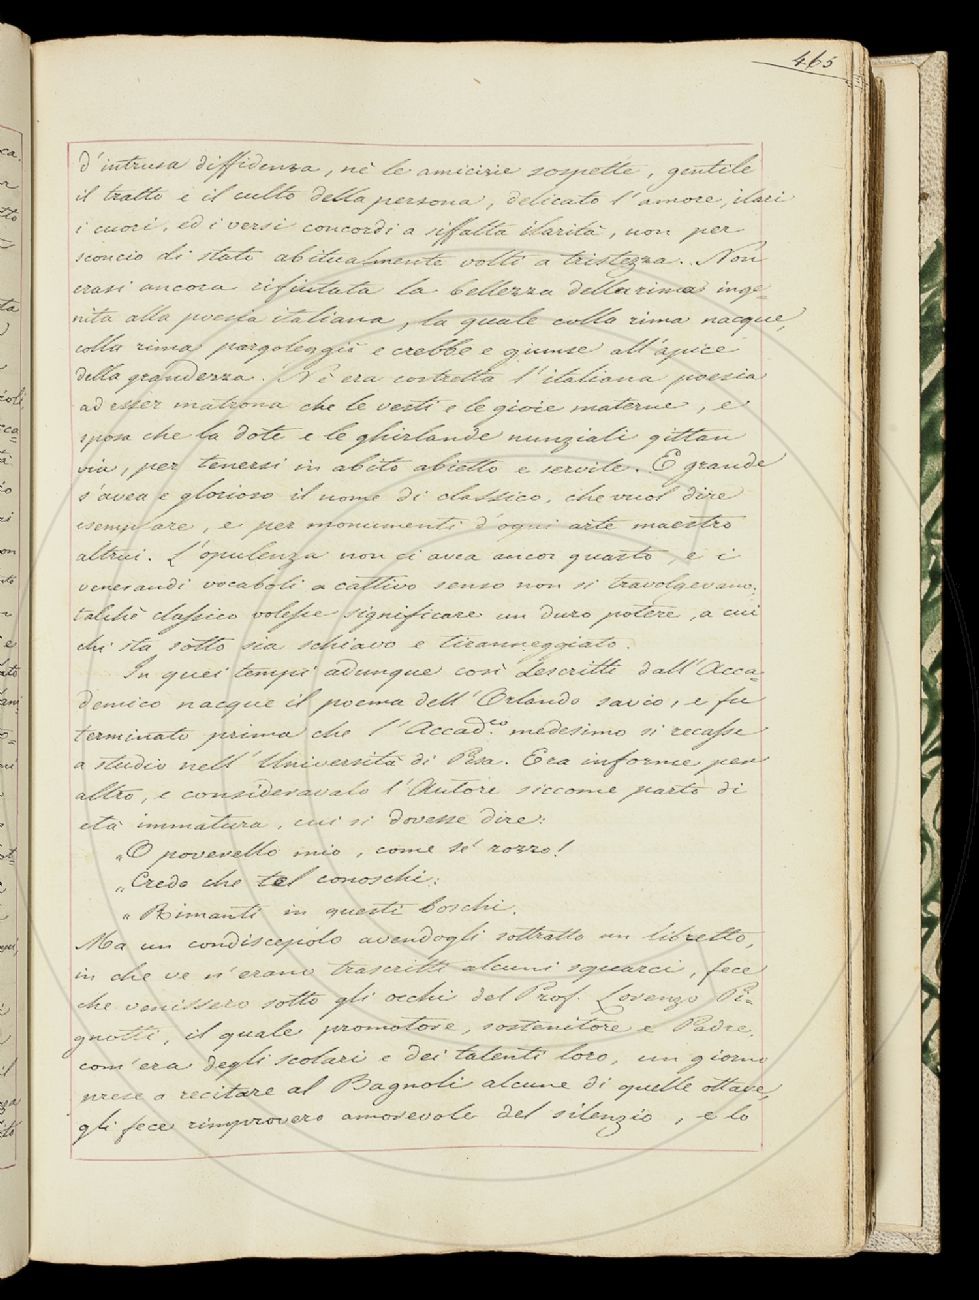 465
d'intrusa diffidenza, nè le amicizie sospette, gentile
il tratto e il culto della persona, delicato l'amore, ilari
i cuori, ed i versi concordi a siffatta ilarità, non per
sconcio di stati abitualmente volti a tristezza. Non
erasi ancora rifiutata la bellezza della rima inge=
nita alla poesia italiana, la quale colla rima nacque,
colla rima pargoleggiò e crebbe e giunse all'apice
della grandezza. Nè era costretta l'italiana poesia
ad esser matrona che le vesti e le gioie materne, e
sposa che la dote e le ghirlande nunziali gittan
via, per tenersi in abito abietto e servile. E grande
s'avea e glorioso il nome di classico, che vuol dire
esemplare, e per monumenti d'ogni arte maestro
altrui. L'opulenza non ci avea ancor guasto, e i
venerandi vocaboli a cattivo senso non si travolgevano;
talchè classico volesse significare un duro potere, a cui
chi stà sotto sia schiavo e tiranneggiato.
In quei tempi adunque così descritti dall'Acca=
demico nacque il poema dell'Orlando savio, e fu
terminato prima che l'Accad.co medesimo si recasse
a studio nell'Università di Pisa. Era informe per
altro, e consideravalo l'Autore siccome parto di
età immatura, cui si dovesse dire:
„O poverello mio, come se' rozzo!
„Credo che tel conoschi:
„Rimanti in questi boschi.
Ma un condiscepolo avendogli sottratto un libretto,
in che ve n'erano trascritti alcuni squarci, fece
che venissero sotto gli occhi del Prof. Lorenzo Pi=
gnotti, il quale promotore, sostenitore e Padre,
com'era degli scolari e dei talenti loro, un giorno
prese a recitare al Bagnoli alcune di quelle ottave,
gli fece rimprovero amorevole del silenzio, e lo